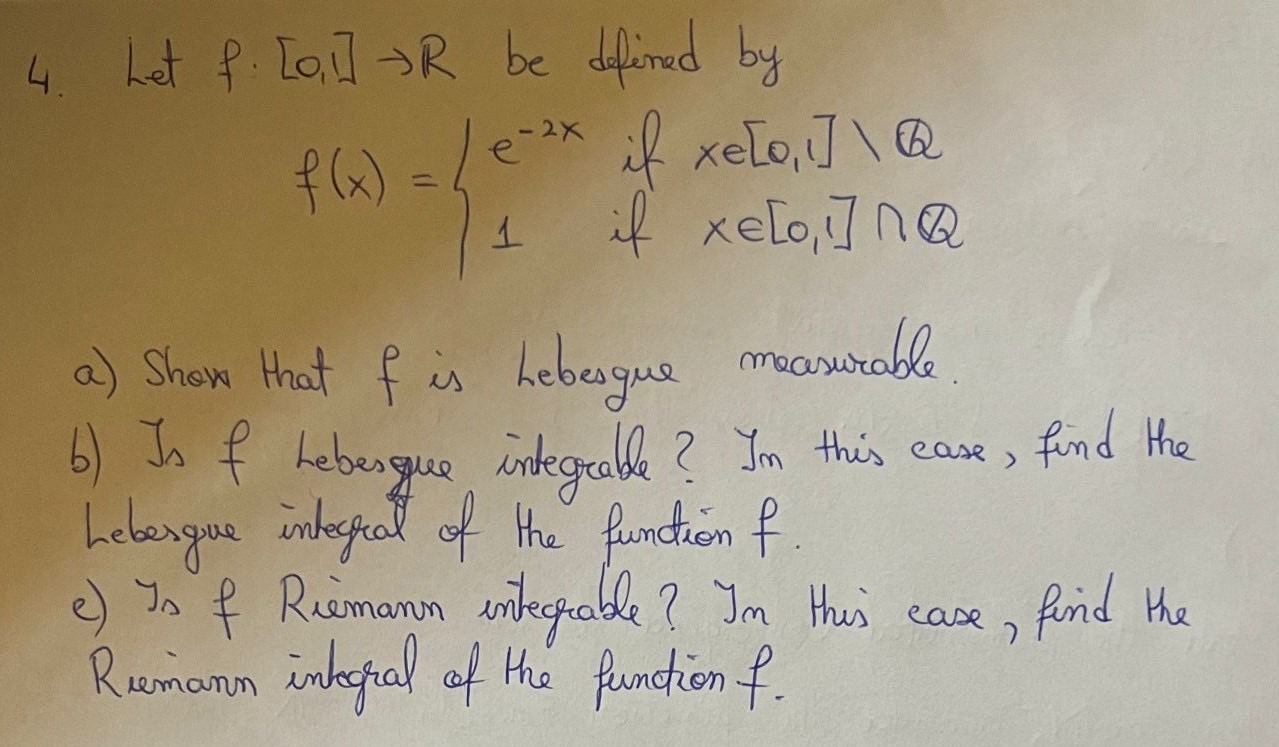 4. Let f: [0,1] → R be defined by
f(x) = { e^{-2x} if x∈[0,1] \ ℚ
1 if x∈[0,1] ∩ ℚ
a) Show that f is Lebesgue measurable.
b) Is f Lebesgue integrable? In this case, find the
Lebesgue integral of the function f.
c) Is f Riemann integrable? In this case, find the
Riemann integral of the function f.